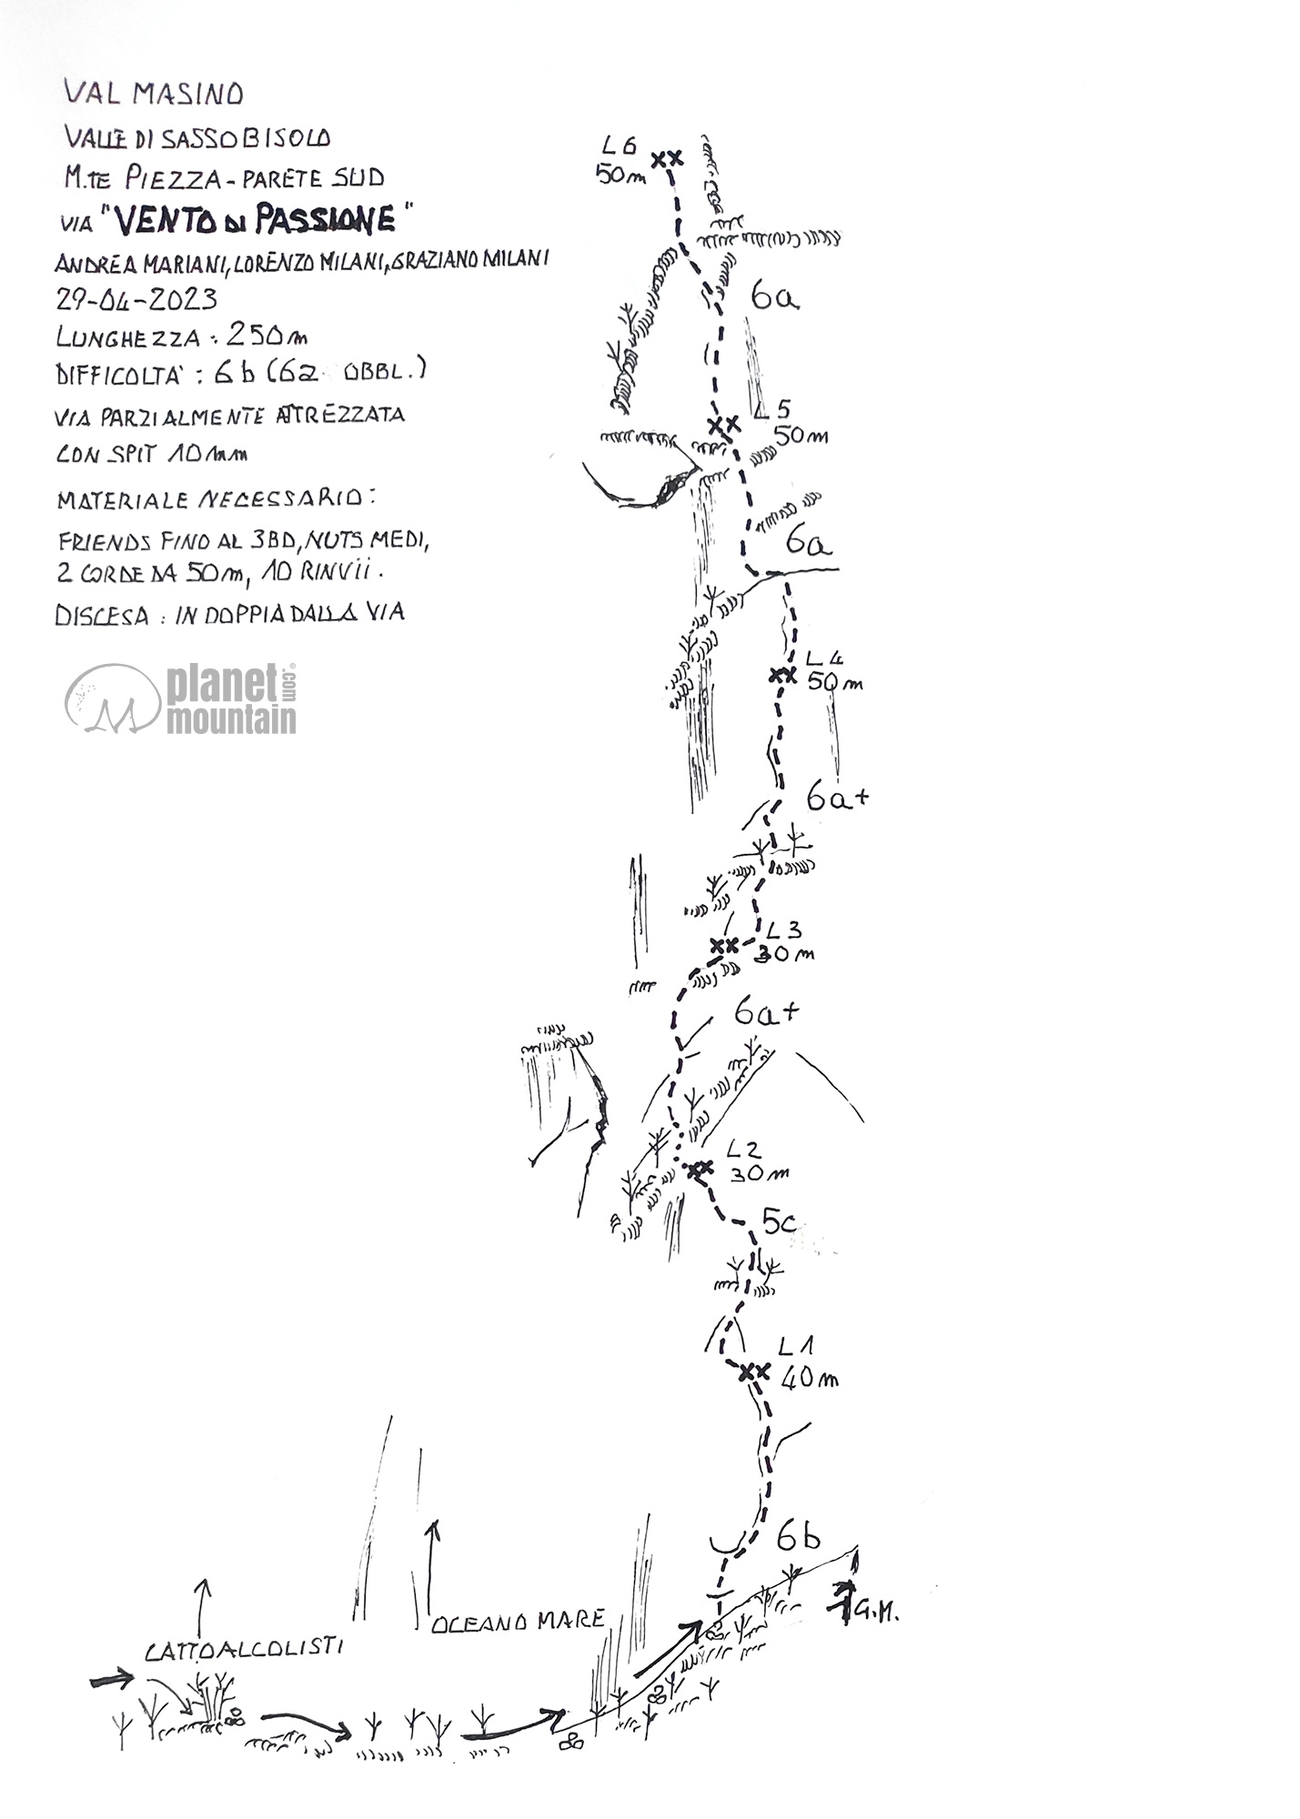 VAL MASINO
VALLE DI SASSO BISOLO
M.TE PIEZZA - PARETE SUD
VIA "VENTO DI PASSIONE"
ANDREA MARIANI, LORENZO MILANI, GRAZIANO MILANI
29-04-2023
LUNGHEZZA: 250m
DIFFICOLTA': 6b (6a OBBL.)
VIA PARZIALMENTE ATTREZZATA
CON SPIT 10mm
MATERIALE NECESSARIO:
FRIENDS FINO AL 3BD, NUTS MEDI,
2 CORDE DA 50m, 10 RINVII.
DISCESA: IN DOPPIA DALLA VIA
planet
mountain
.com
L6
50m
6a
L5
50m
6a
L4
50m
6a+
L3
30m
6a+
L2
30m
5c
L1
40m
6b
G.M.
OCEANO MARE
CATTOALCOLISTI